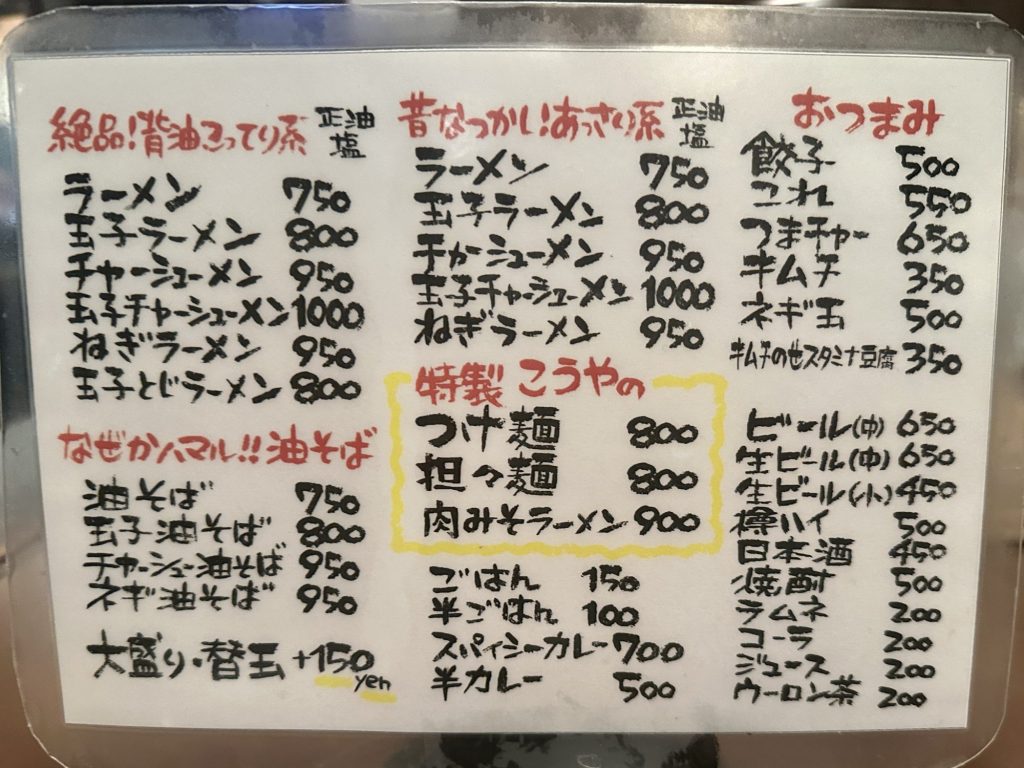 絶品!背油こってり系 正油 塩
ラーメン 750
玉子ラーメン 800
チャーシューメン 950
玉子チャーシューメン 1000
ねぎラーメン 950
玉子とじラーメン 800
なぜかハマル!!油そば
油そば 750
玉子油そば 800
チャーシュー油そば 950
ネギ油そば 950
大盛り・替玉 +150yen
昔なつかい!あっさり系 正油 塩
ラーメン 750
玉子ラーメン 800
チャーシューメン 950
玉子チャーシューメン 1000
ねぎラーメン 950
特製 こうやの
つけ麺 800
担々麺 800
肉みそラーメン 900
ごはん 150
半ごはん 100
スパイシーカレー 700
半カレー 500
おつまみ
餃子 500
これ 550
つまチャー 650
キムチ 350
ネギ玉 500
キムチの也スタミナ豆腐 350
ビール(中) 650
生ビール(中) 650
生ビール(小) 450
樽ハイ 500
日本酒 450
焼酎 500
ラムネ 200
コーラ 200
ジュース 200
ウーロン茶 200